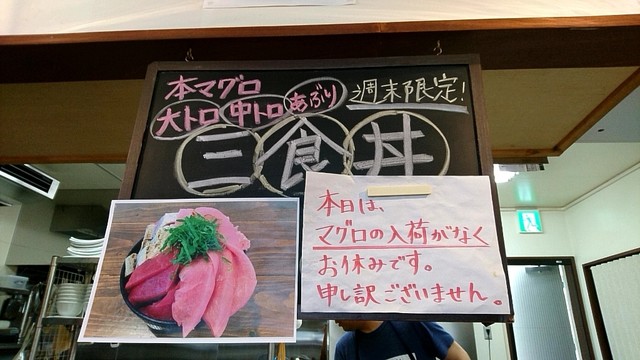 本マグロ
大トロ 中トロ あぶり
週末限定!
三食丼
本日は、
マグロの入荷がなく
お休みです。
申し訳ございません。